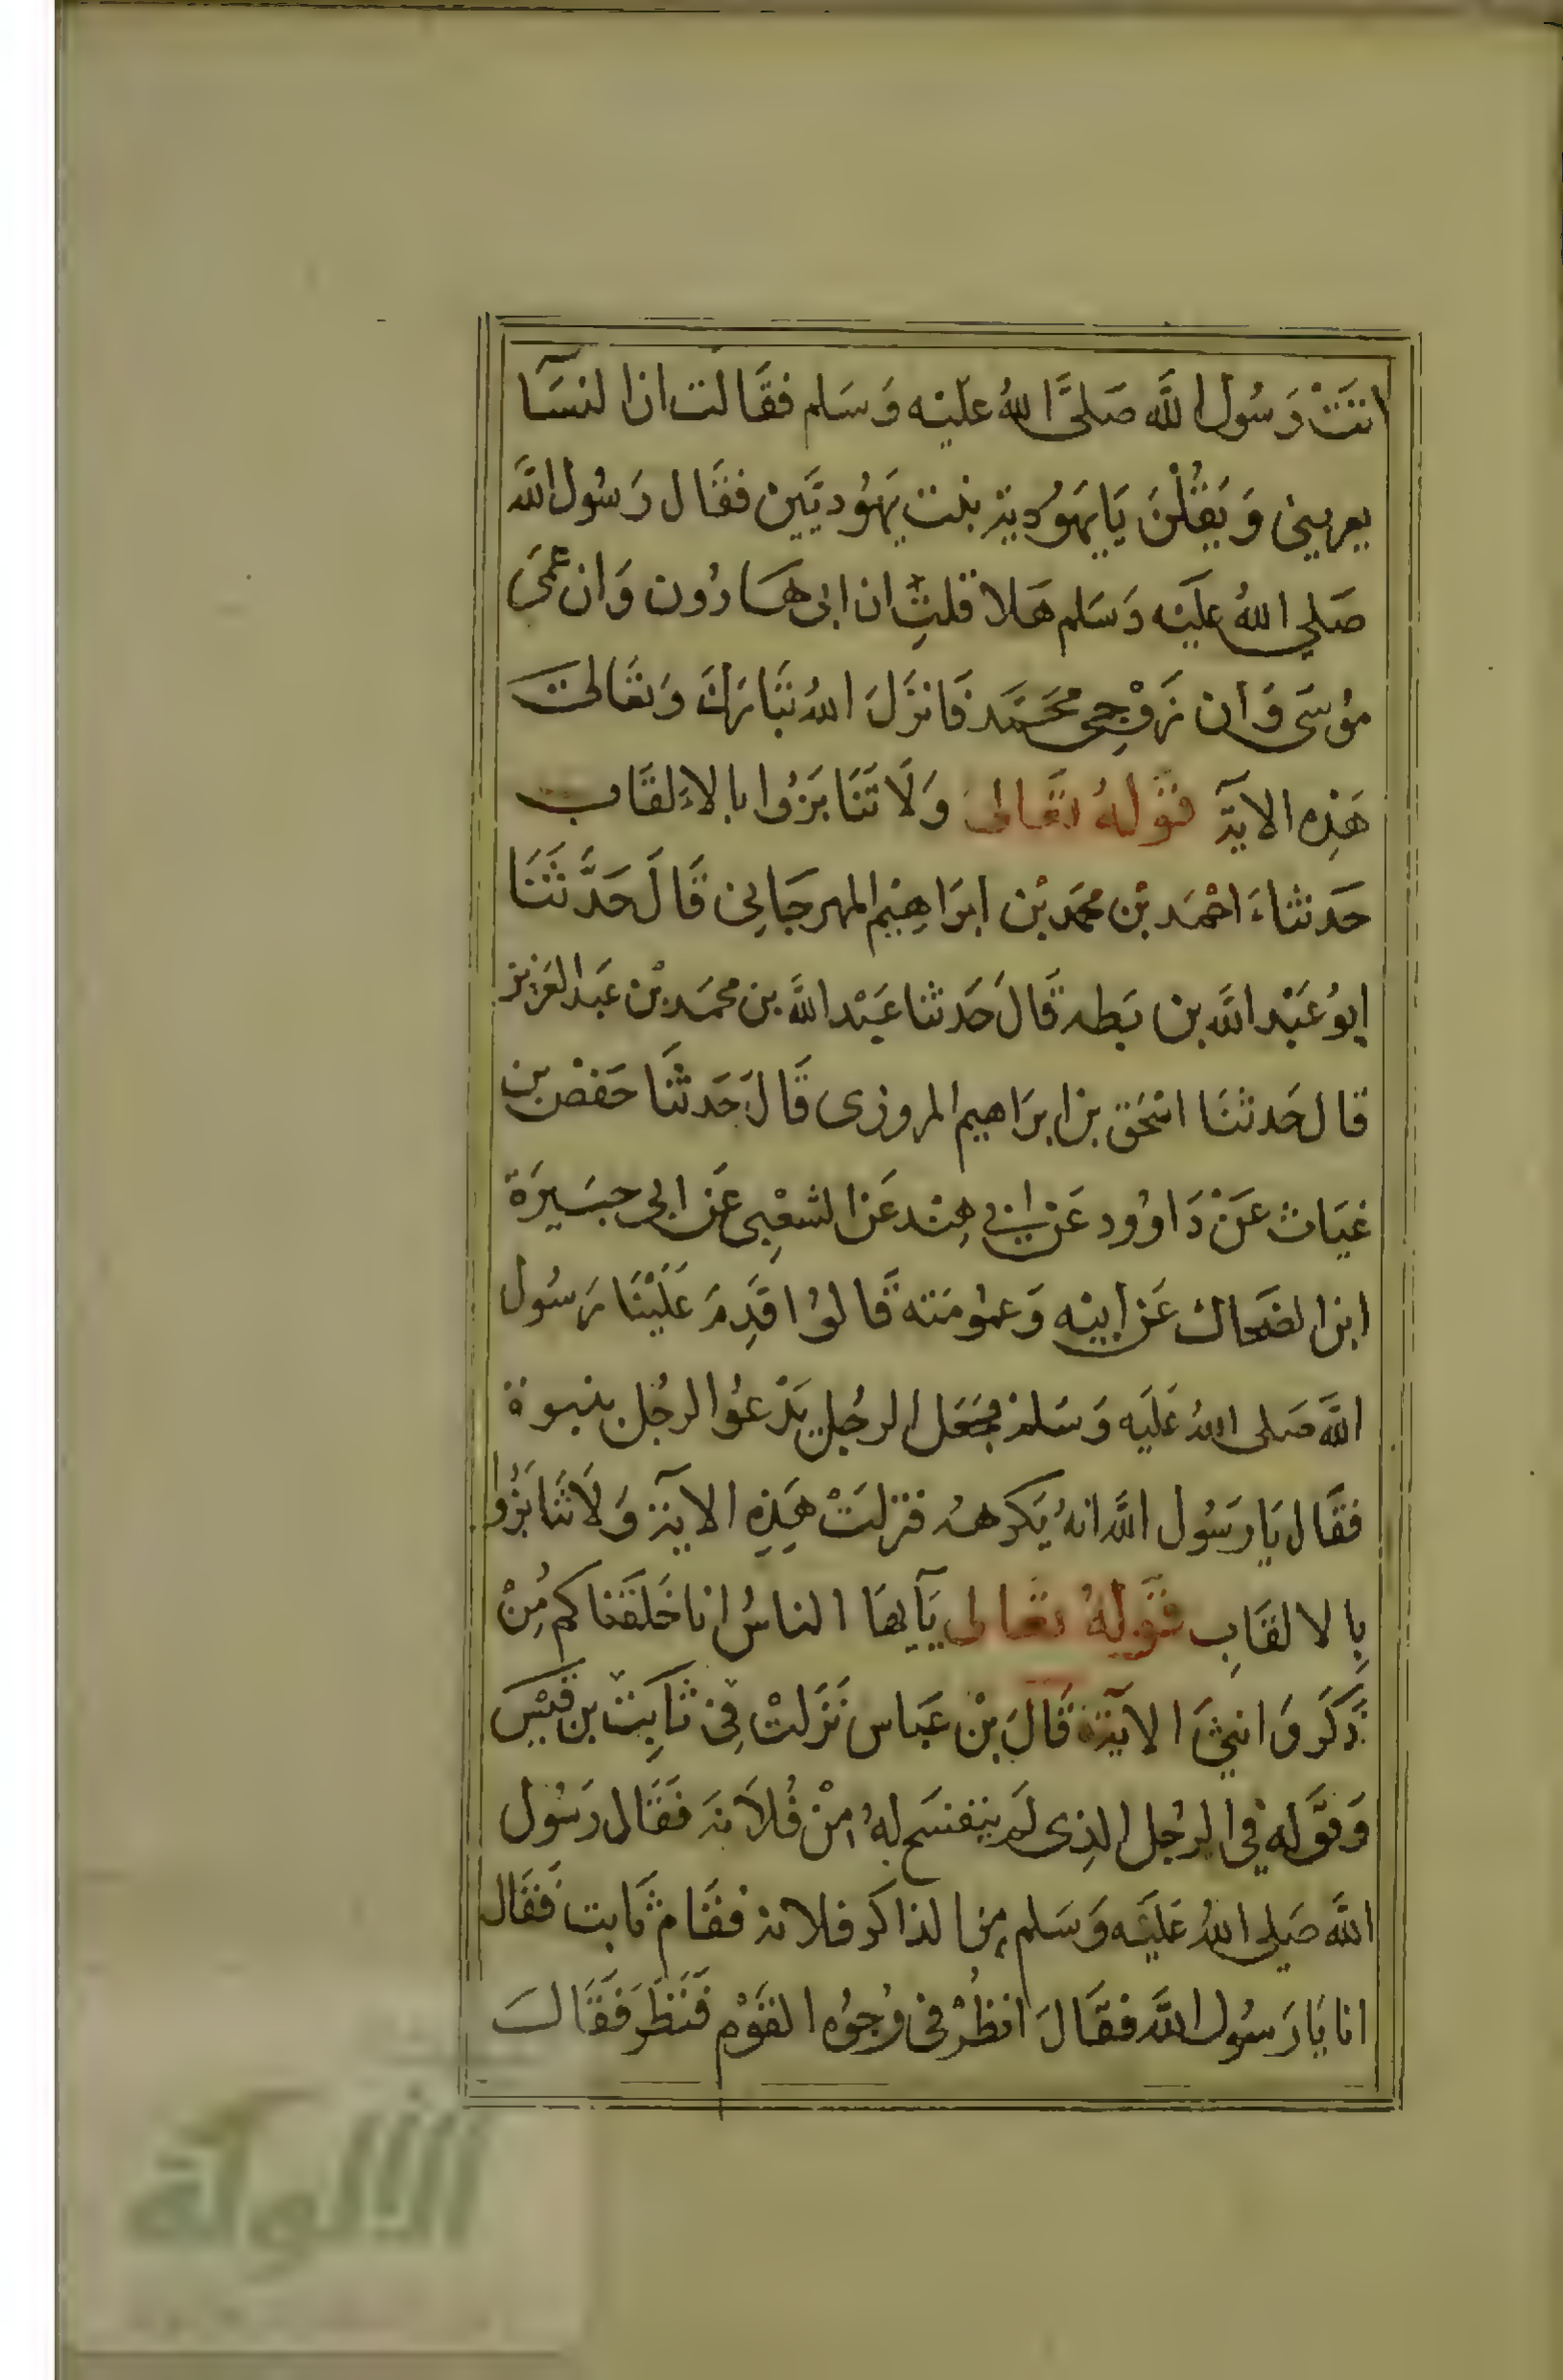 اتَتْ رَسُول اللَّه صَلىَّ اللهُ عليْه وَسَلم فقَالت ان النسَآ
يعريني وَيَقُلْنَ يَا يهَوُدية بنت يهَوُديَّين فقَال رَسُول اللَّه
صَلي اللهُ عليْه وَسَلم هَلا قلتِ ان ابى هَارُون وَان عمىَ
مؤسَى وَأن زَوْجِى محَمَّد فَانزَلَ اللهُ تبَارَكَ وَتعَالىَ
هَذِه الايَة قَوْلهُ تعَالى وَلَا تَنَابَزُوا بالاءَلقَاب
حَدثناءَ احْمَد بْن محمَد بْن ابرَاهِيْم المهرجَانِى قَالَ حَدَّثَنَا
ابوُ عَبْد اللَّه بن بَطه قَالَ حَدثنا عَبْد اللَّه بن محمَد بْن عَبد العَزِيز
قال حَدثنَا اسْحَق بن ابرَاهيم المروزى قَالَ حَدثنَا حَفصْ بن
غيَاث عَنْ دَاوُود عَن ابى هِنْد عَن الشعْبِى عَن ابى جبَيرَة
ابن الضحاك عَن ابيْه وَعموُمَته قَالوُا قَدِمَ عَلَيْنَا رَسُول
اللَّه صَلى اللهُ عَلَيَه وَسَلم فجَعَل الرجُل يَدْعوُ الرجُل بنبوة
فقَال يَا رَسُول اللَّه انهُ يَكرهه فنزلَتْ هَذِهِ الايَة وَلَا تَنَابَزُوا
بِالالقَابِ قَوْلهُ تعَالى يَآيهَا الناسُ انا خَلَقنَاكم مِنْ
ذَكَرَ وَانثىَ الايَة قَالَ بْن عَبَاس نَزَلتْ فِى ثَابِت بن قَيْسَ
وَقوَله في الرجُل الذِى لَم يتفسَح لهُ ابْن فُلَانة فَقَال رَسُول
اللَّه صَلى اللهُ عَليَه وَسَلم مِن الذاكر فلانة فقَام ثَابت فَقَال
انا يَا رَسُول اللَّه فقَالَ انظُرْ فى وُجوُه القَوْم فَنَظَرَ فَقَالَ
الألوكة